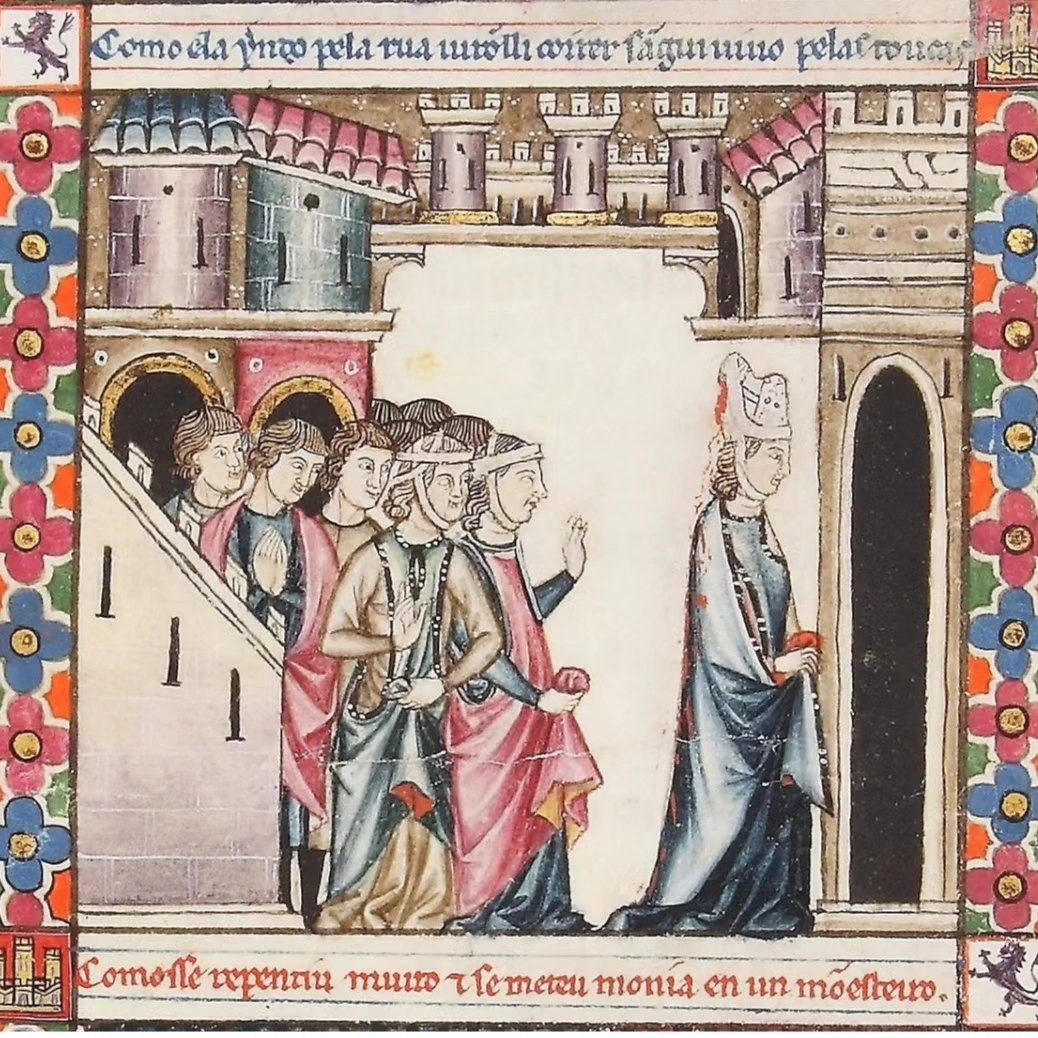 Como ela ẏndo pela rua uirõlli correr sãgui uiuo pelas toucas
Comosse repentiu muito ⁊ se meteu monia en un mõesteiro.